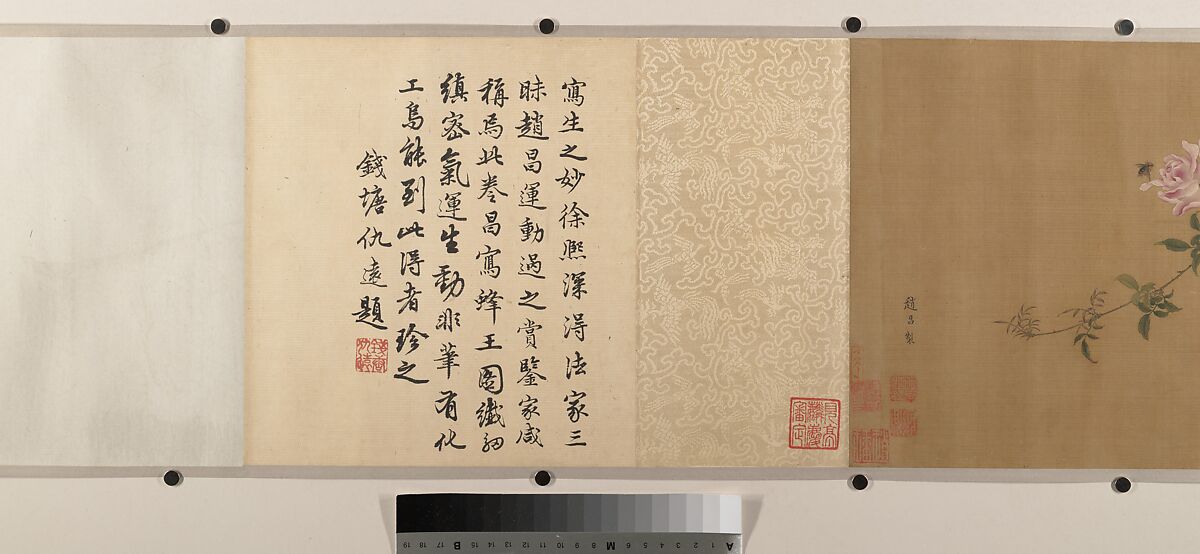 趙昌製
寫生之妙徐熈深得法家三
昧趙昌運動過之賞鑒家咸
稱焉此卷昌寫蜂王圖纖細
縝密氣運生動非筆有化
工烏能到此得者珍之
錢塘仇遠題
A 1 2 3 4 5 6 M 8 9 10 11 12 13 14 15 B 17 18 19